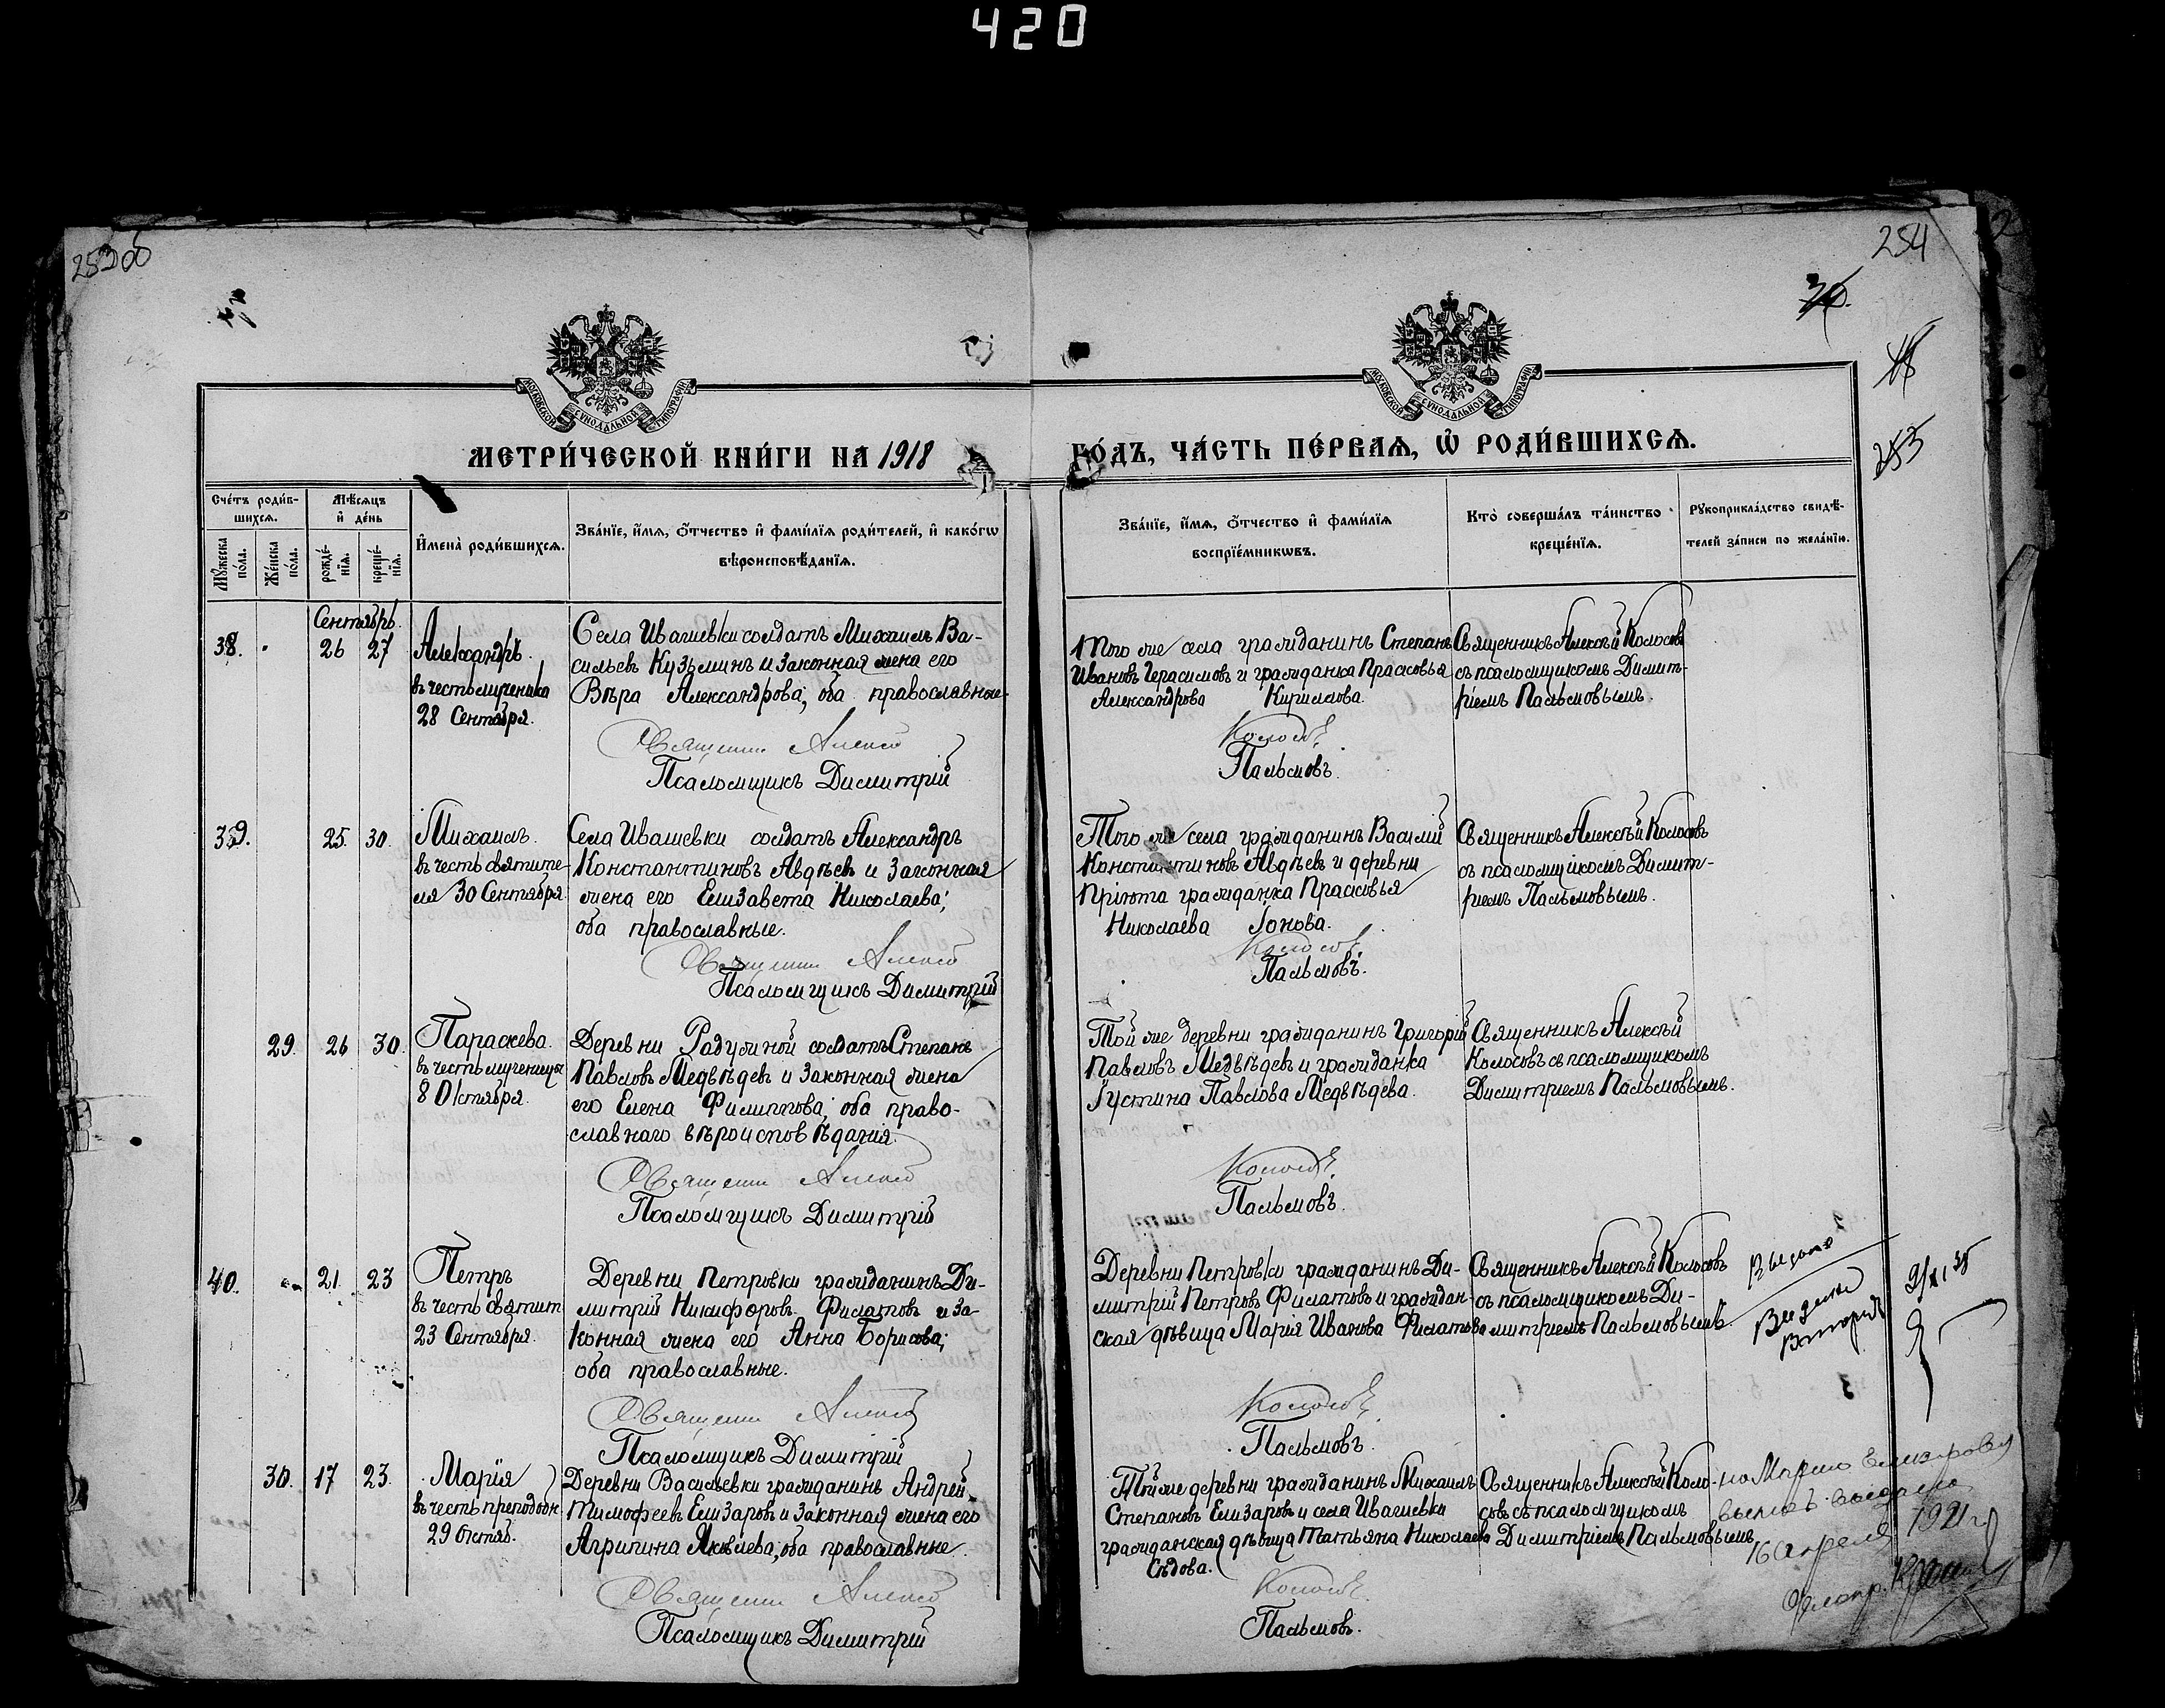 420
253об
254
МОСКОВСКОЙ СѴНОДАЛЬНОЙ ТИПОГРАФІИ
МОСКОВСКОЙ СѴНОДАЛЬНОЙ ТИПОГРАФІИ
МЕТРИ́ЧЕСКОЙ КНИ́ГИ НА 1918
ГО́ДЪ, ЧА́СТЬ ПЕ́РВАѦ, Ѡ РОДИ́ВШИХСѦ.
Сче́тъ роди́в-
шихсѧ.
Мѣ́сѧцъ
и де́нь
Мꙋ́жеска по́ла.
Же́нска по́ла.
рожде́-
нїѧ.
креще́-
нїѧ.
И҆мена̀ роди́вшихсѧ.
Зва́нїе, и҆́мѧ, ѻ҆́тчество и҆ фами́лїѧ роди́телей, и҆ како́гѡ
вѣроисповѣ́данїѧ.
Зва́нїе, и҆́мѧ, ѻ҆́тчество и҆ фами́лїѧ
воспрїе́мникѡвъ.
Кто̀ соверша́лъ та́инство
креще́нїѧ.
Рꙋкоприкла́дство свидѣ́-
телей за́писи по жела́нїю.
Сентябрь.
38.
26
27
Александръ.
въ честь мученика
28 Сентября.
Села Ивашевки солдатъ Михаилъ Ва-
сильевъ Кузьминъ и законная жена его
Вѣра Александрова; оба православные.
Священникъ Алексѣй
Псаломщикъ Димитрій
Того же села гражданинъ Степанъ
Ивановъ Герасимовъ и гражданка Прасковья
Александрова Кирилова.
Колосовъ.
Пальмовъ.
Священникъ Алексѣй Колосовъ
съ псаломщикомъ Димит-
ріемъ Пальмовымъ.
39.
25.
30.
Михаилъ.
въ честь святите-
ля 30 Сентября
Села Ивашевки солдатъ Александръ
Константиновъ Авдѣевъ и законная
жена его Елизавета Николаева;
оба православные.
Священникъ Алексѣй
Псаломщикъ Димитрій
Того же села гражданинъ Василій
Константиновъ Авдѣевъ и деревни
Пріюта гражданка Прасковья
Николаева Іонова.
Колосовъ.
Пальмовъ.
Священникъ Алексѣй Колосовъ
съ псаломщикомъ Димит-
ріемъ Пальмовымъ.
29.
26
30.
Параскева.
въ честь мученицы
8 Октября.
Деревни солдатъ Степанъ
Павловъ Медвѣдевъ и законная жена
его Елена Филиппова; оба право-
славнаго вѣроисповѣданія.
Священникъ Алексѣй
Псаломщикъ Димитрій
Той же деревни гражданинъ Григорій
Павловъ Медвѣдевъ и гражданка
Іустина Павлова Медвѣдева.
Колосовъ.
Пальмовъ.
Священникъ Алексѣй
Колосовъ съ псаломщикомъ
Димитріемъ Пальмовымъ.
40.
21.
23
Петръ
въ честь святит.
23 Сентября.
Деревни Петровки гражданинъ Ди-
митрій Никифоровъ Филатовъ и за-
конная жена его Анна Борисова;
оба православные.
Священникъ Алексѣй
Псаломщикъ Димитрій
Деревни Петровки гражданинъ Ди-
митрій Петровъ Филатовъ и граждан-
ская дѣвица Марія Иванова Филатова
Колосовъ.
Пальмовъ.
Священникъ Алексѣй Колосовъ
съ псаломщикомъ Ди-
митріемъ Пальмовымъ.
30.
17
23.
Марія
въ честь преподобн.
29 Октяб.
Деревни Васильевки гражданинъ Андрей
Тимофеевъ Елизаровъ и законная жена его
Агрипина Яковлева, оба православные.
Священникъ Алексѣй
Псаломщикъ Димитрій
Той же деревни гражданинъ Михаилъ
Степановъ Елизаровъ и села Ивашевки
гражданская дѣвица Татьяна Николаева
Сѣдова.
Колосовъ.
Пальмовъ.
Священникъ Алексѣй Коло-
совъ съ псаломщикомъ
Димитріемъ Пальмовымъ
на Марию Елизарову
16 апреля 1921 г.